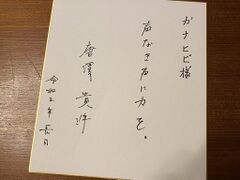 カナヒビ様
声なき声に力を。
唐澤貴洋
令和三年五月